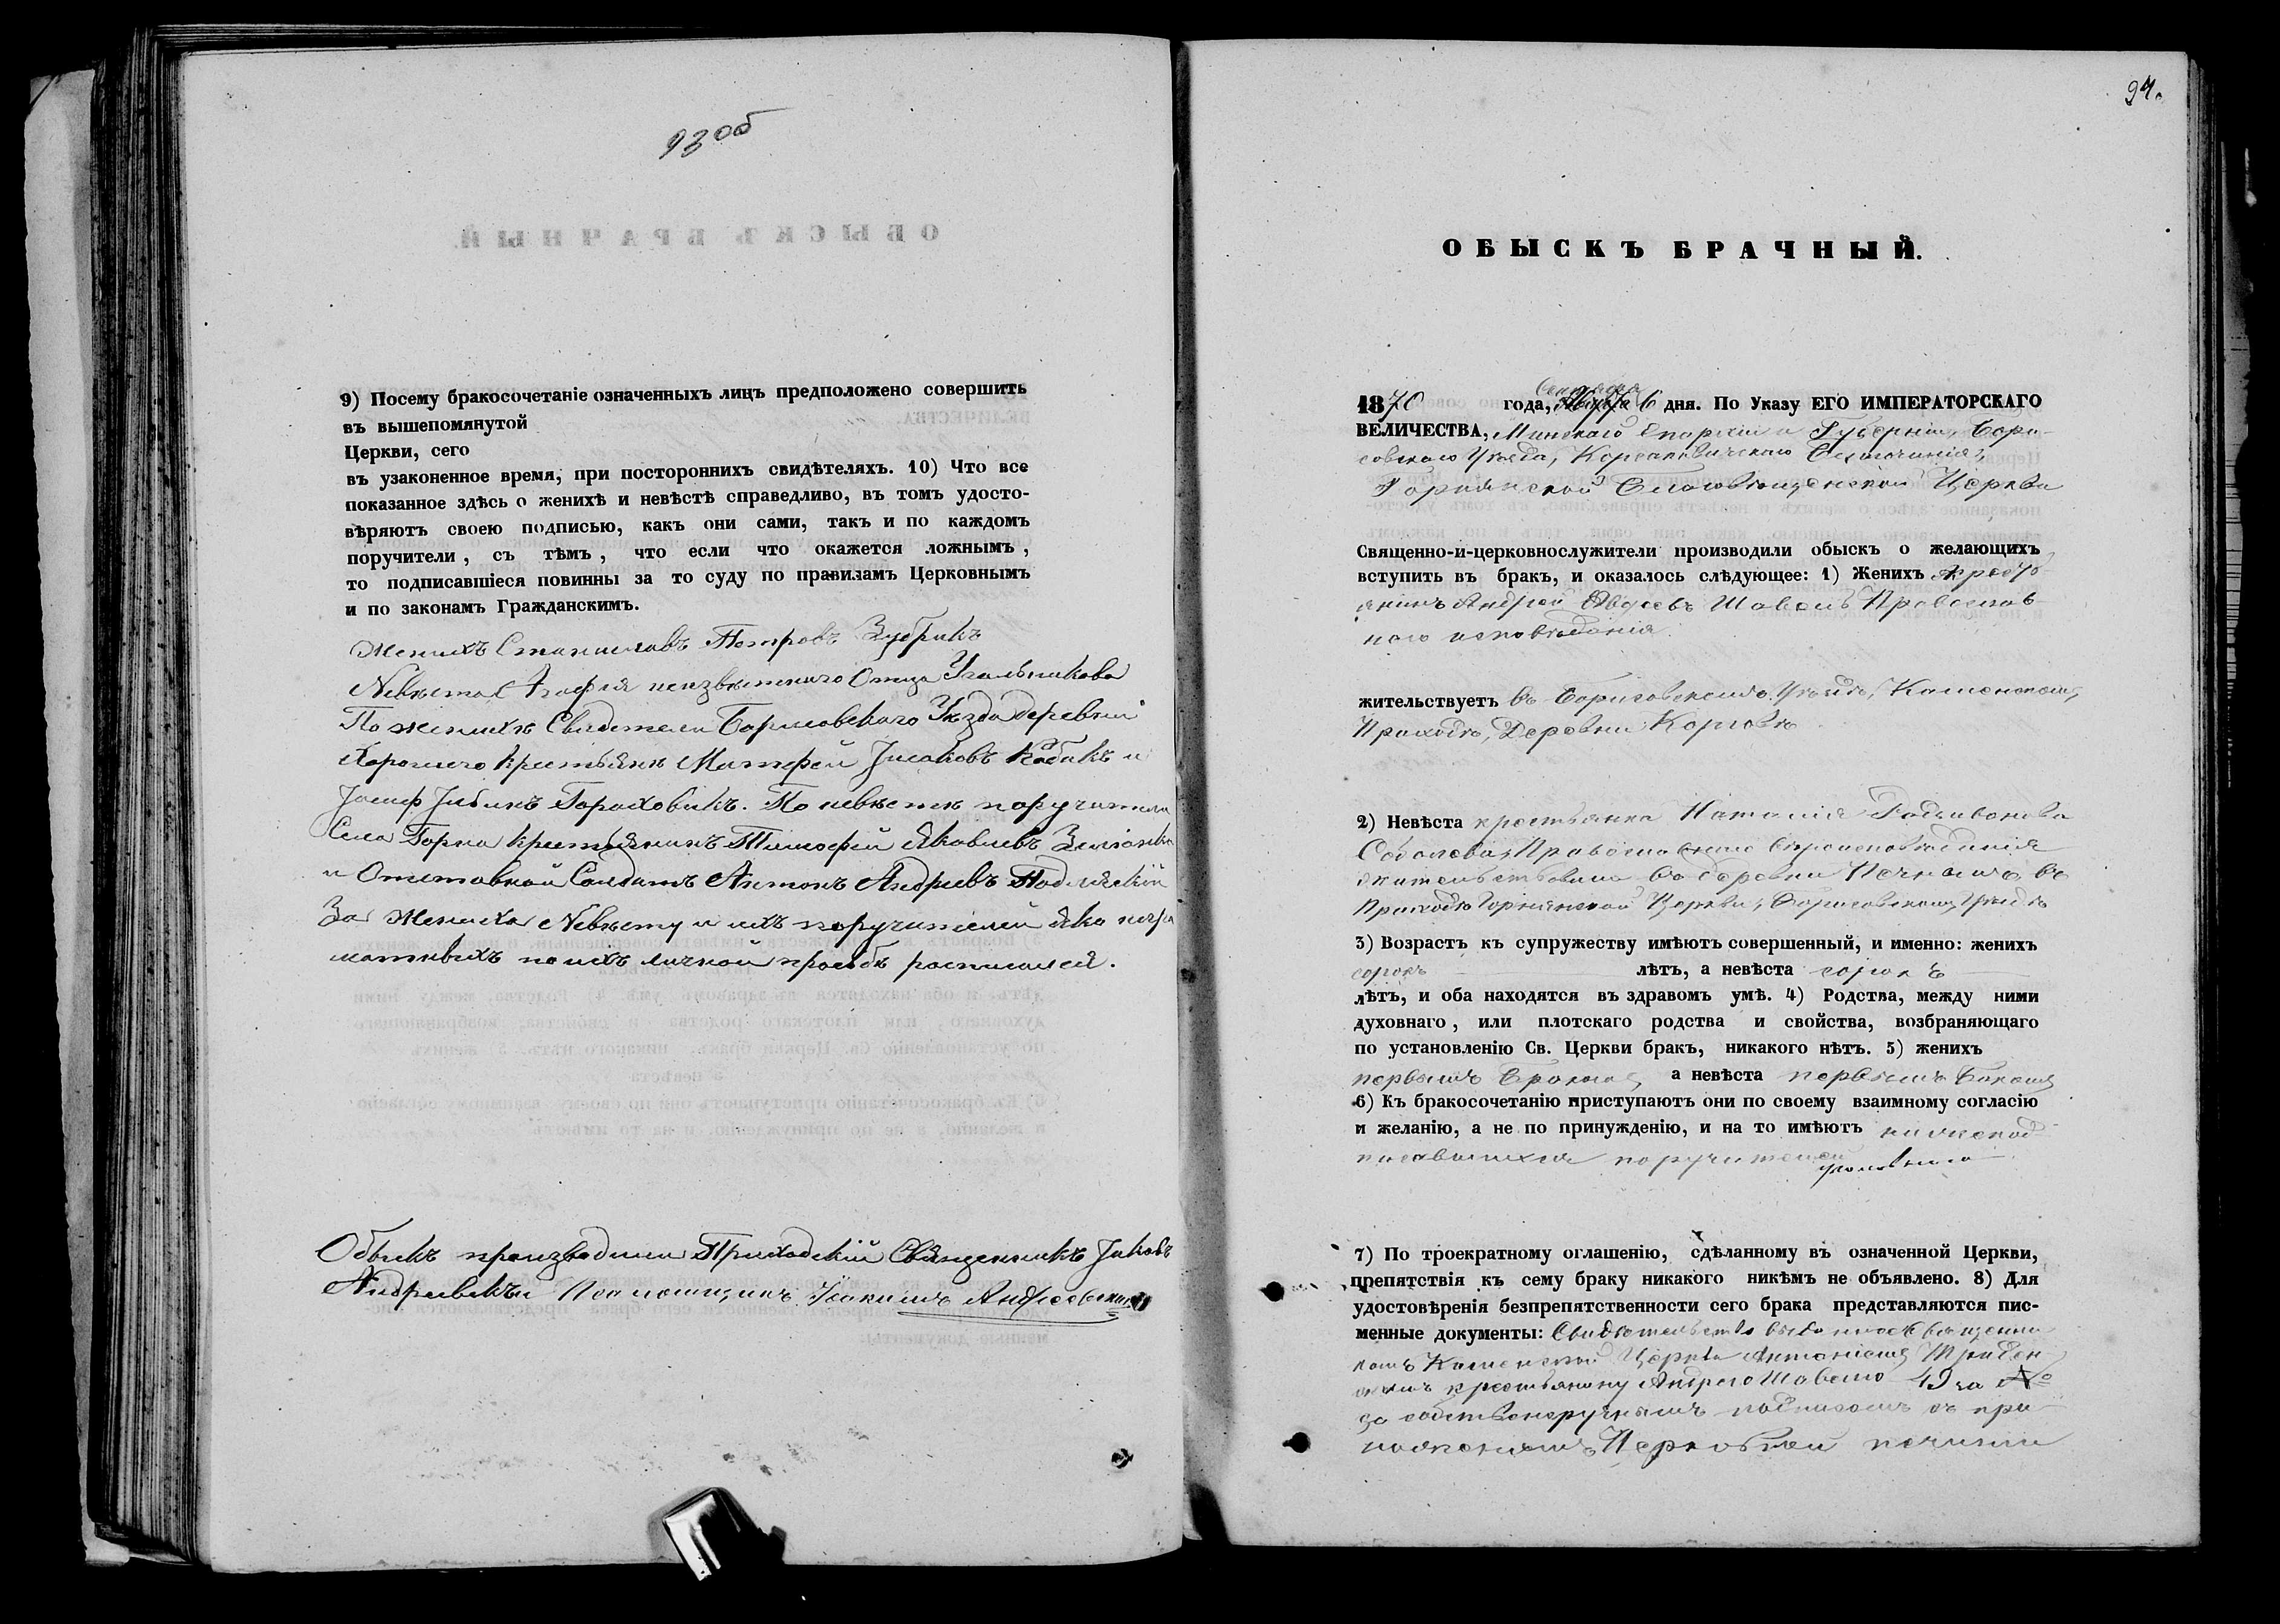 93об
9) Посему бракосочетаніе означенныхъ лицъ предположено совершить
въ вышепомянутой
Церкви, сего
въ узаконенное время, при постороннихъ свидѣтеляхъ. 10) Что все
показанное здѣсь о женихѣ и невѣстѣ справедливо, въ томъ удосто-
вѣряютъ своею подписью, какъ они сами, такъ и по каждомъ
поручители, съ тѣмъ, что если что окажется ложнымъ,
то подписавшіеся повинны за то суду по правиламъ Церковнымъ
и по законамъ Гражданскимъ.
Женихъ Станиславъ Петровъ Зубрикъ
Невѣста Агафія неизвѣстнаго Отца
По женихѣ Свидетели Борисовскаго Уезда деревни
Хорошего Крестьяне Матфей Исаковъ и
Іосиф По невѣстѣ поручители
Села Горна Крестьянинъ Тимофей Яковлевъ
и Отставной Солдатъ Антонъ Андреевъ Подляскій
За Жениха Невѣсту и ихъ поручителей яко негра
мотныхъ по ихъ личной просьбѣ росписался.
Обыскъ производили Приходскій Священникъ Іаковъ
94.
ОБЫСКЪ БРАЧНЫЙ.
1870 года, Сентября 6 дня. По Указу ЕГО ИМПЕРАТОРСКАГО
ВЕЛИЧЕСТВА, Минской Епархіи и Губерніи, Бори-
совскаго Уѣзда, Благочинія,
Благовѣщенской Церкви
Священно-и-церковнослужители производили обыскъ о желающихъ
вступить въ бракъ, и оказалось слѣдующее: 1) Женихъ кресть
янинъ Андрей Авдеевъ Православ-
наго исповѣданія
жительствуетъ въ Борисовскомъ Уѣздѣ, Каменскомъ
Приходѣ, Деревни
2) Невѣста крестьянка Наталія Радивонова
Соболева, Православнаго вѣроисповѣданія
жительствовала въ деревни въ
Приходѣ Церкви, Борисовскомъ Уѣздѣ
3) Возрастъ къ супружеству имѣютъ совершенный, и именно: женихъ
сорокъ лѣтъ, а невѣста сорокъ
лѣтъ, и оба находятся въ здравомъ умѣ. 4) Родства, между ними
духовнаго, или плотскаго родства и свойства, возбраняющаго
по установленію Св. Церкви бракъ, никакого нѣтъ. 5) женихъ
первымъ бракомъ, а невѣста первымъ
6) Къ бракосочетанію приступаютъ они по своему взаимному согласію
и желанію, а не по принужденію, и на то имѣютъ
поручителей
7) По троекратному оглашенію, сдѣланному въ означенной Церкви,
препятствія къ сему браку никакого никѣмъ не объявлено. 8) Для
удостовѣренія безпрепятственности сего брака представляются пис-
менные документы: Свидѣтельство
Каменской Церкви Антоніемъ
крестьянину Андрею 49 №
за собственоручнымъ подписомъ съ при-
ложеніемъ Церковной печати